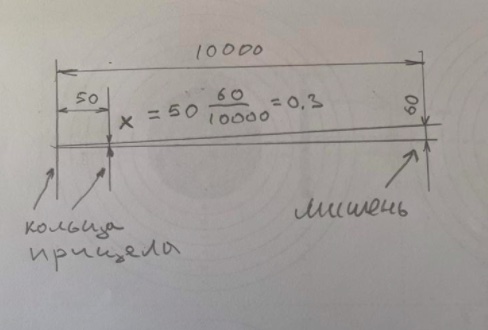 10000
50
x = 50 60/10000 = 0.3
60
кольца
прицела
мишень